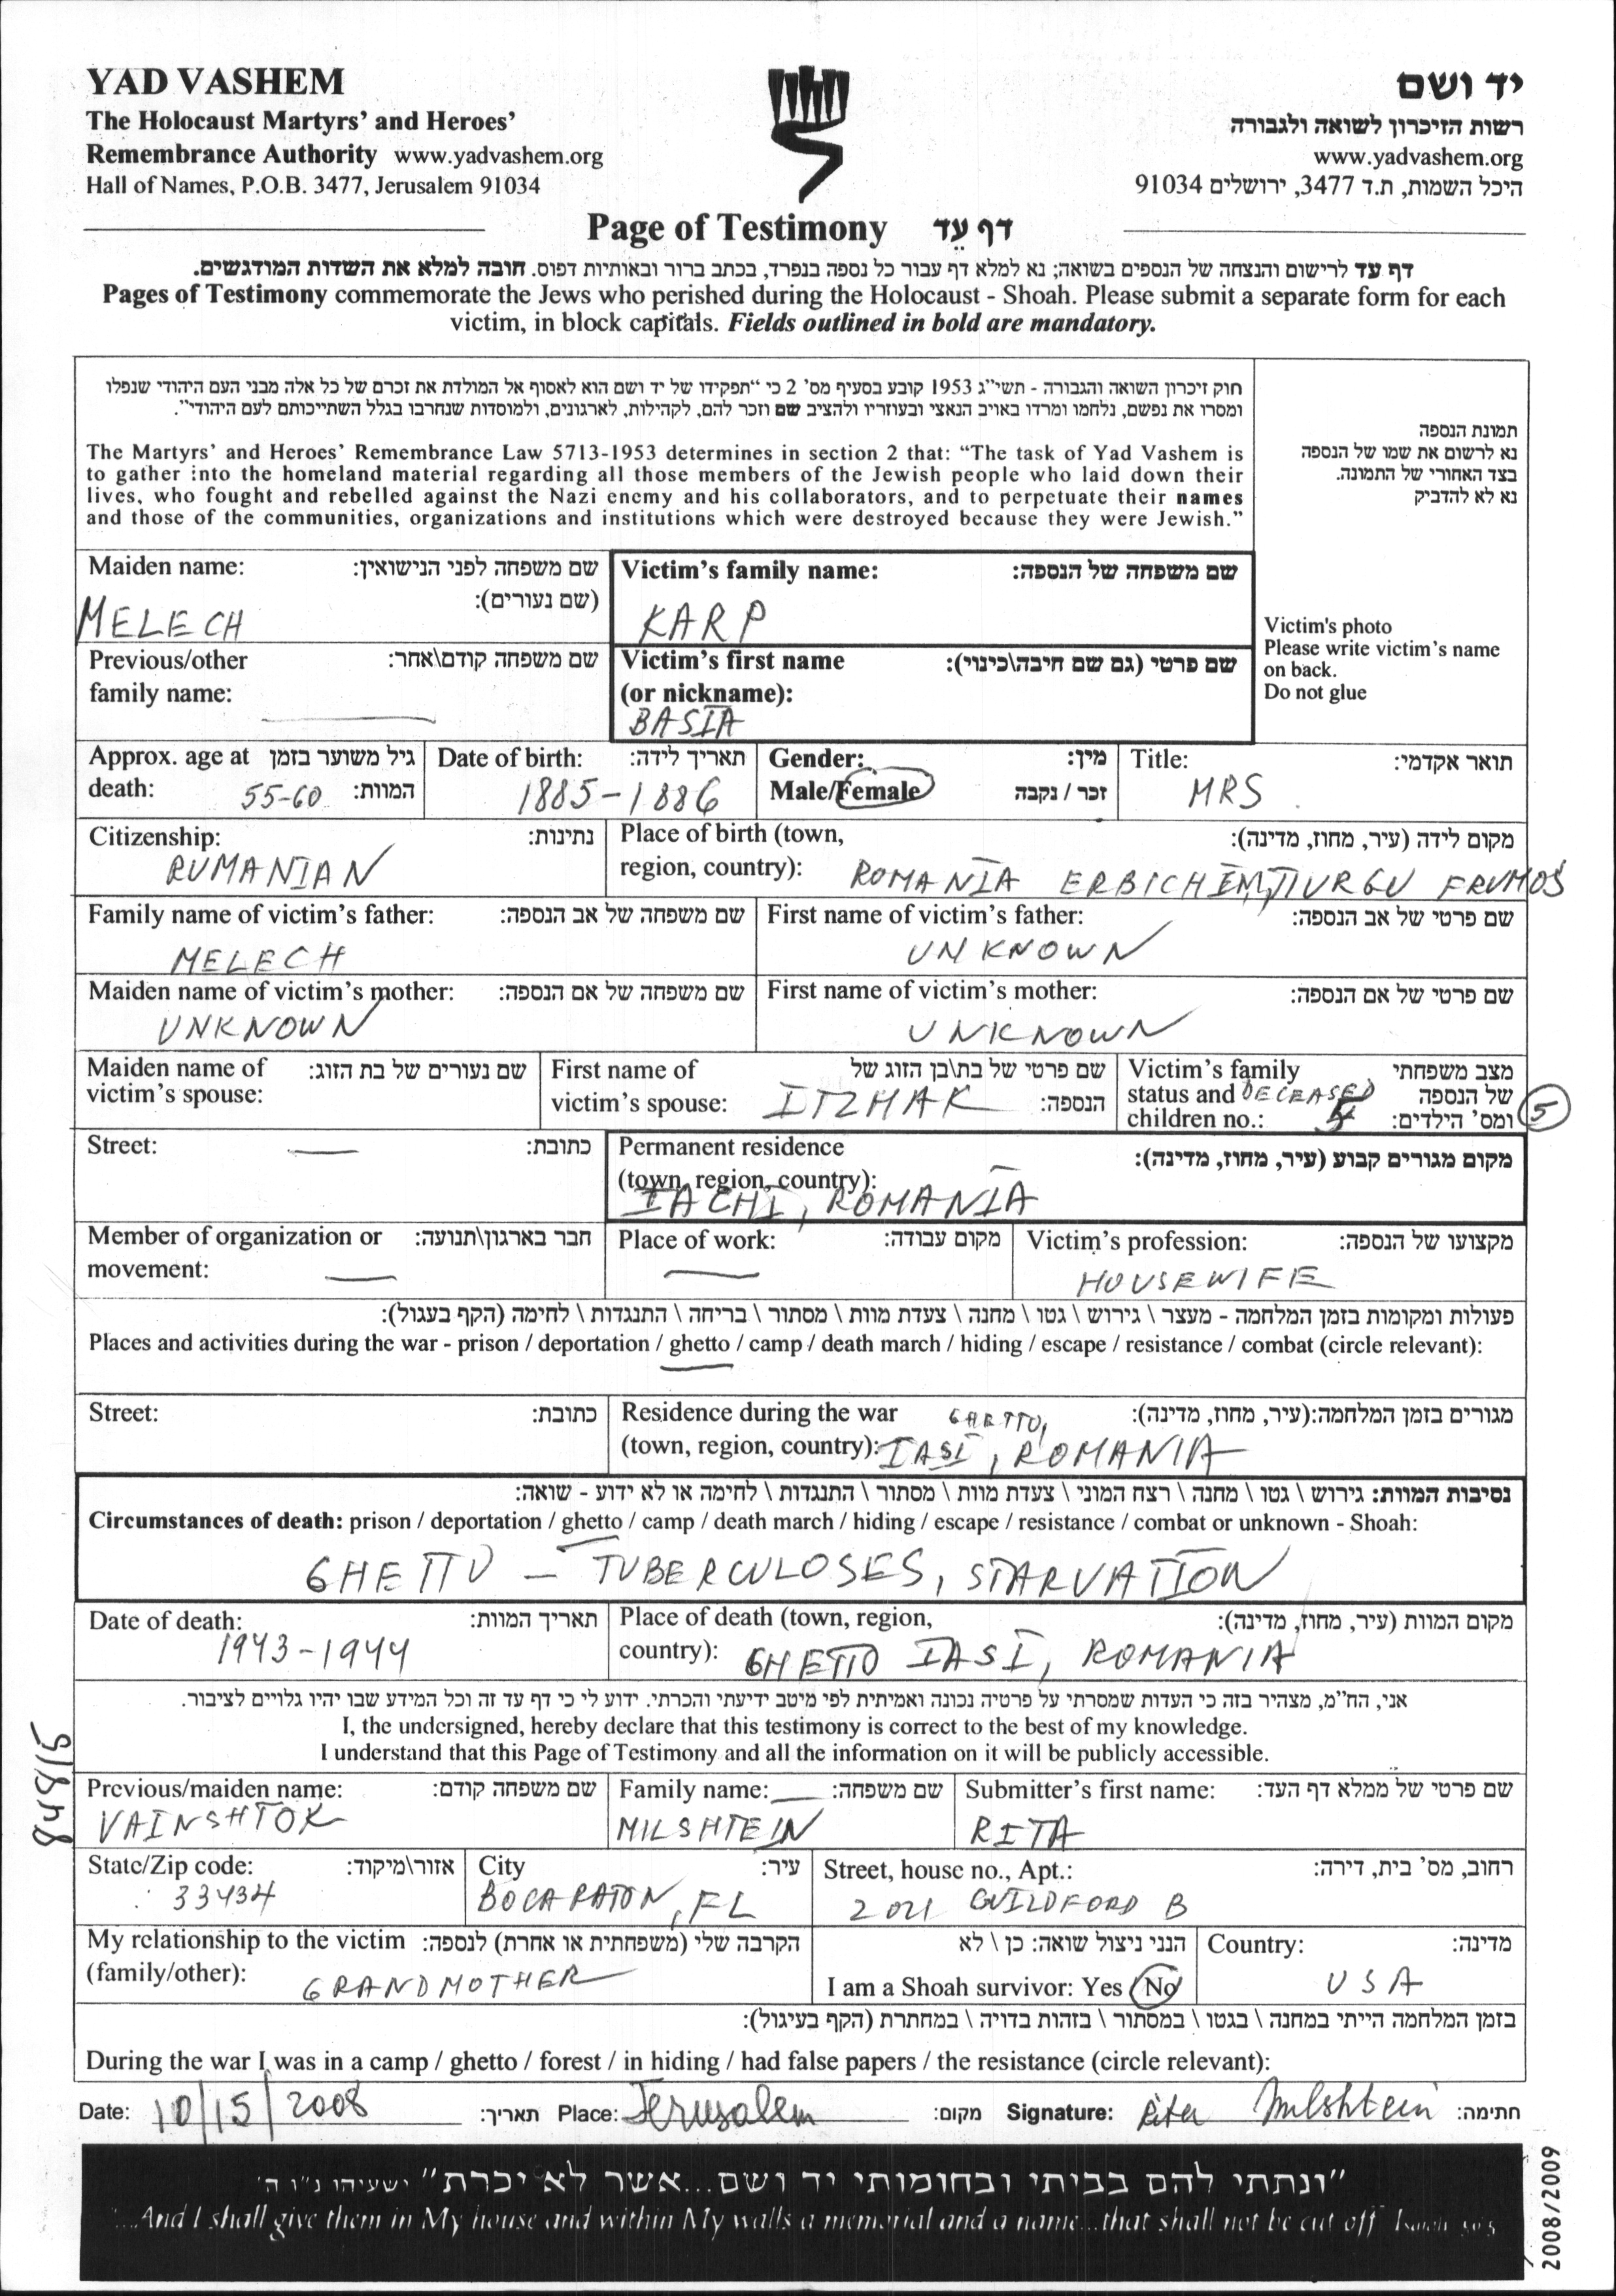 YAD VASHEM
The Holocaust Martyrs' and Heroes'
Remembrance Authority www.yadvashem.org
Hall of Names, P.O.B. 3477, Jerusalem 91034
יד ושם
רשות הזיכרון לשואה ולגבורה
www.yadvashem.org
היכל השמות, ת.ד 3477, ירושלים 91034
Page of Testimony דף עֵד
דף עד לרישום והנצחה של הנספים בשואה; נא למלא דף עבור כל נספה בנפרד, בכתב ברור ובאותיות דפוס. חובה למלא את השדות המודגשים.
Pages of Testimony commemorate the Jews who perished during the Holocaust - Shoah. Please submit a separate form for each
victim, in block capitals. Fields outlined in bold are mandatory.
חוק זיכרון השואה והגבורה - תשי"ג 1953 קובע בסעיף מס' 2 כי "תפקידו של יד ושם הוא לאסוף אל המולדת את זכרם של כל אלה מבני העם היהודי שנפלו
ומסרו את נפשם, נלחמו ומרדו באויב הנאצי ובעוזריו ולהציב שם וזכר להם, לקהילות, לארגונים, ולמוסדות שנחרבו בגלל השתייכותם לעם היהודי".
The Martyrs' and Heroes' Remembrance Law 5713-1953 determines in section 2 that: "The task of Yad Vashem is
to gather into the homeland material regarding all those members of the Jewish people who laid down their
lives, who fought and rebelled against the Nazi enemy and his collaborators, and to perpetuate their names
and those of the communities, organizations and institutions which were destroyed because they were Jewish."
תמונת הנספה
נא לרשום את שמו של הנספה
בצד האחורי של התמונה.
נא לא להדביק
Victim's photo
Please write victim's name
on back.
Do not glue
Maiden name: שם משפחה לפני הנישואין:
(שם נעורים):
MELECH
Victim's family name: שם משפחה של הנספה:
KARP
Previous/other שם משפחה קודם\אחר:
family name:
Victim's first name שם פרטי (גם שם חיבה\כינוי):
(or nickname):
BASIA
Approx. age at גיל משוער בזמן
death: 55-60 המוות:
Date of birth: תאריך לידה:
1885-1886
Gender: מין:
Male/Female זכר / נקבה
Title: תואר אקדמי:
MRS
Citizenship: נתינות:
RUMANIAN
Place of birth (town, מקום לידה (עיר, מחוז, מדינה):
region, country): ROMANIA ERBICHENI, TIURGU FRUMOS
Family name of victim's father: שם משפחה של אב הנספה:
MELECH
First name of victim's father: שם פרטי של אב הנספה:
UNKNOWN
Maiden name of victim's mother: שם משפחה של אם הנספה:
UNKNOWN
First name of victim's mother: שם פרטי של אם הנספה:
UNKNOWN
Maiden name of שם נעורים של בת הזוג:
victim's spouse:
First name of שם פרטי של בת\בן הזוג של
victim's spouse: ITZHAK הנספה:
Victim's family מצב משפחתי
status and DECEASED של הנספה
children no.: ומס' הילדים: 5
Street: כתובת:
Permanent residence מקום מגורים קבוע (עיר, מחוז, מדינה):
(town, region, country):
IACHI, ROMANIA
Member of organization or חבר בארגון\תנועה:
movement:
Place of work: מקום עבודה:
Victim's profession: מקצועו של הנספה:
HOUSEWIFE
פעולות ומקומות בזמן המלחמה - מעצר \ גירוש \ גטו \ מחנה \ צעדת מוות \ מסתור \ בריחה \ התנגדות \ לחימה (הקף בעגול):
Places and activities during the war - prison / deportation / ghetto / camp / death march / hiding / escape / resistance / combat (circle relevant):
Street: כתובת:
Residence during the war GHETTO, מגורים בזמן המלחמה:(עיר, מחוז, מדינה):
(town, region, country): IASI, ROMANIA
נסיבות המוות: גירוש \ גטו \ מחנה \ רצח המוני \ צעדת מוות \ מסתור \ התנגדות \ לחימה או לא ידוע - שואה:
Circumstances of death: prison / deportation / ghetto / camp / death march / hiding / escape / resistance / combat or unknown - Shoah:
GHETTO - TUBERCULOSES, STARVATION
Date of death: תאריך המוות:
1943-1944
Place of death (town, region, מקום המוות (עיר, מחוז, מדינה):
country): GHETTO IASI, ROMANIA
אני, הח"מ, מצהיר בזה כי העדות שמסרתי על פרטיה נכונה ואמיתית לפי מיטב ידיעתי והכרתי. ידוע לי כי דף עד זה וכל המידע שבו יהיו גלויים לציבור.
I, the undersigned, hereby declare that this testimony is correct to the best of my knowledge.
I understand that this Page of Testimony and all the information on it will be publicly accessible.
Previous/maiden name: שם משפחה קודם:
VAINSHTOK
Family name: שם משפחה:
MILSHTEIN
Submitter's first name: שם פרטי של ממלא דף העד:
RITA
State/Zip code: אזור\מיקוד:
33434
City עיר:
BOCA RATON, FL
Street, house no., Apt.: רחוב, מס' בית, דירה:
2021 GUILDFORD B
My relationship to the victim הקרבה שלי (משפחתית או אחרת) לנספה:
(family/other): GRANDMOTHER
הנני ניצול שואה: כן \ לא
I am a Shoah survivor: Yes / No
Country: מדינה:
USA
בזמן המלחמה הייתי במחנה \ בגטו \ במסתור \ בזהות בדויה \ במחתרת (הקף בעיגול):
During the war I was in a camp / ghetto / forest / in hiding / had false papers / the resistance (circle relevant):
Date: 10/15/2008 תאריך: Place: Jerusalem מקום: Signature: Rita Milshtein חתימה:
"ונתתי להם בביתי ובחומותי יד ושם...אשר לא יכרת" ישעיהו נ"ו ה'
...And I shall give them in My house and within My walls a memorial and a name...that shall not be cut off Isaiah 56:5
2008/2009